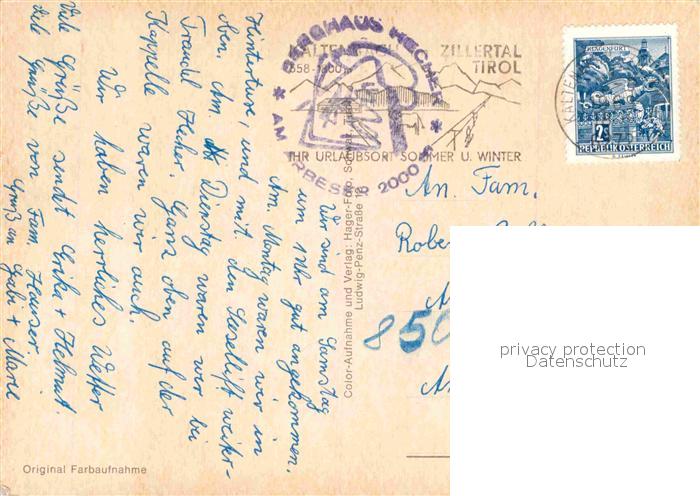 Wir sind am Samstag
um 1 Uhr gut angekommen.
Am Montag waren wir in
Hintertux, und mit den Sessellift weiter-
oben. Am Dienstag waren wir bei
Traudel Hecher. Ganz oben auf der
Kapelle waren wir auch.
Wir haben herrliches Wetter
Viele Grüße sendet Erika + Helmut
Viele Grüße von Fam. Hauser
Gruß an Gabi + Marie
Original Farbaufnahme
Color-Aufnahme und Verlag: Hager-Foto, Schwaz, Tirol
Ludwig-Penz-Straße 12
BERGHAUS HECHER
* AM ARBESER 2000 M *
KALTENBACH ZILLERTAL
558-1800 m TIROL
IHR URLAUBSORT SOMMER U. WINTER
KALTEN
KLAGENFURT
2S
REPUBLIK ÖSTERREICH
An Fam.
Robe
850
privacy protection
Datenschutz